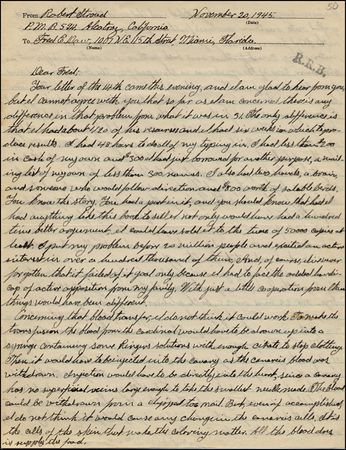 50
From Robert Stroud November 20, 1945.
P.M.B. 594. Alcatraz, California (Date)
To Fred E. Daw, 1017 N.E. 115th Street Miami, Florida.
(Name) (Address)
Dear Fred:
Your letter of the 14th came this evening, and I am glad to hear from you,
but I cannot agree with you that so far as I am concerned there is any
difference in that problem from what it was in 31. The only difference is
that I had about 1/20 of his resources and I had six weeks in which to pro-
duce results. I had 48 hours to do all of my typing in. I had less than
in cash of my own and $300 I had just borrowed for another purpose, a mail-
ing list of my own of less than 300 names. I also had two hands, a brain,
and someone who would follow directions and $800 worth of salable birds.
You know the story. You had a part in it, and you should know that had I
had anything like this book to sell I not only would have had a hundred
times better argument, it could have sold it to the time of 50000 copies at
least. I put my problem before 20 million people and excited an active
interest in over a hundred thousand of them. And, of course, I never
forgotten that it failed of its goal only because it had to face the added handi-
cap of active opposition from my family. With just a little cooperation from them
things would have been different.
Concerning that blood transfer, I do not think it could work. To make the
transfusion the blood from the cardinal would have to be drawn up into a
syringe containing some Ringers solution with enough citrate to stop clotting.
Then it would have to be injected into the canary as the canaries blood was
withdrawn. Injection would have to be directly into the heart, since a canary
has no superficial veins large enough to take the smallest needle made. The blood
could be withdrawn from a clipped toe nail. But, even if accomplished,
I do not think it would cause any change in the canaries cells. It is
the cells of the skin that make the coloring matter. All the blood does
is supply the food.